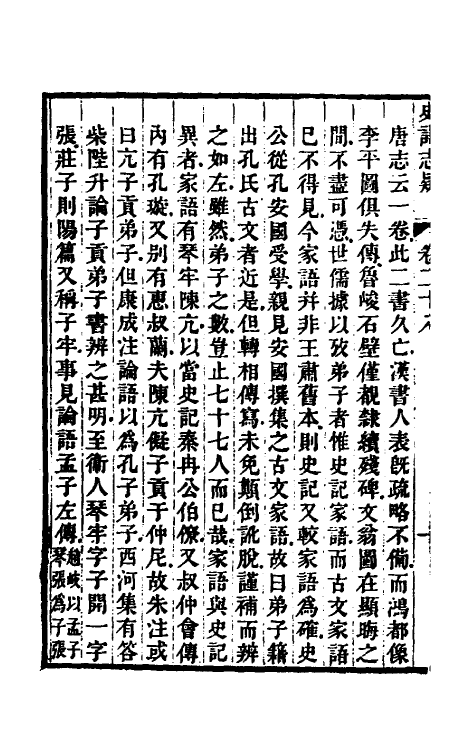 史記志疑 卷二十八
唐志云一卷此二書久亡漢書人表旣疏略不備而鴻都像
李平圖俱失傳魯峻石壁僅覩隸續殘碑文翁圖在顯晦之
間不盡可憑世儒據以攷弟子者惟史記家語而古文家語
已不得見今家語并非王肅舊本則史記又較家語爲確史
公從孔安國受學親見安國撰集之古文家語故曰弟子籍
出孔氏古文者近是但轉相傳寫未免顚倒訛脫謹補而辨
之如左雖然弟子之數豈止七十七人而已哉家語與史記
異者家語有琴牢陳亢以當史記秦冉公伯僚又叔仲會傳
內有孔璇又別有惠叔蘭夫陳亢儗子貢于仲尼故朱注或
曰亢子貢弟子但康成注論語以為孔子弟子西河集有答
柴陛升論子貢弟子書辨之甚明至衞人琴牢字子開一字
張莊子則陽篇又稱子牢事見論語孟子左傳趙岐以孟子
琴張爲子張